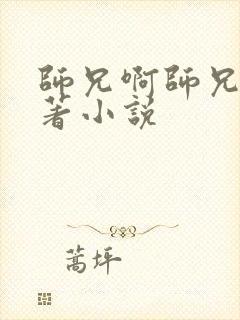 師兄啊師兄
著小説
蒿坪